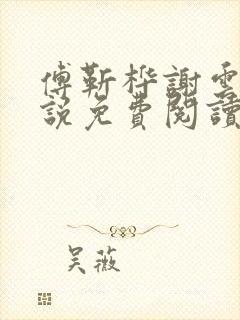 傅靳桦謝雲
說免費閱讀
吴薇